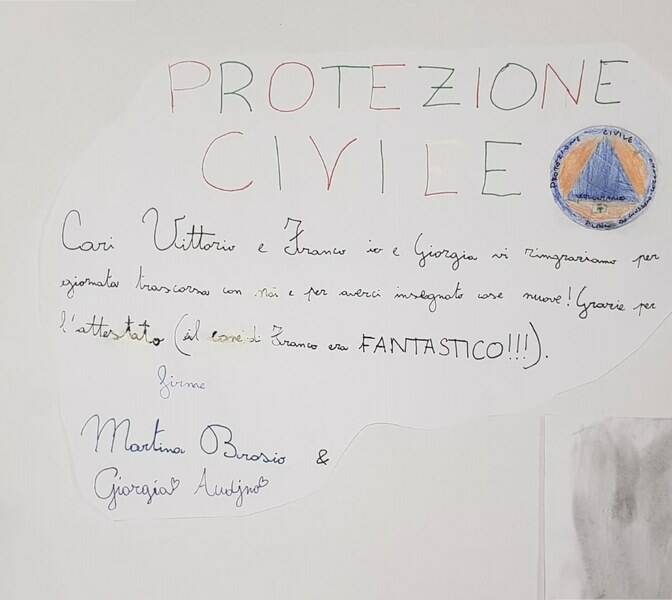 PROTEZIONE
CIVILE
PROTEZIONE CIVILE
VOLONTARIO
Cari Vittorio e Franco io e Giorgia vi ringraziamo per
giornata trascorsa con noi e per averci insegnato cose nuove! Grazie per
l'attestato (il cane di Franco era FANTASTICO!!!).
firme
Martina Brosio &
Giorgia Audjno